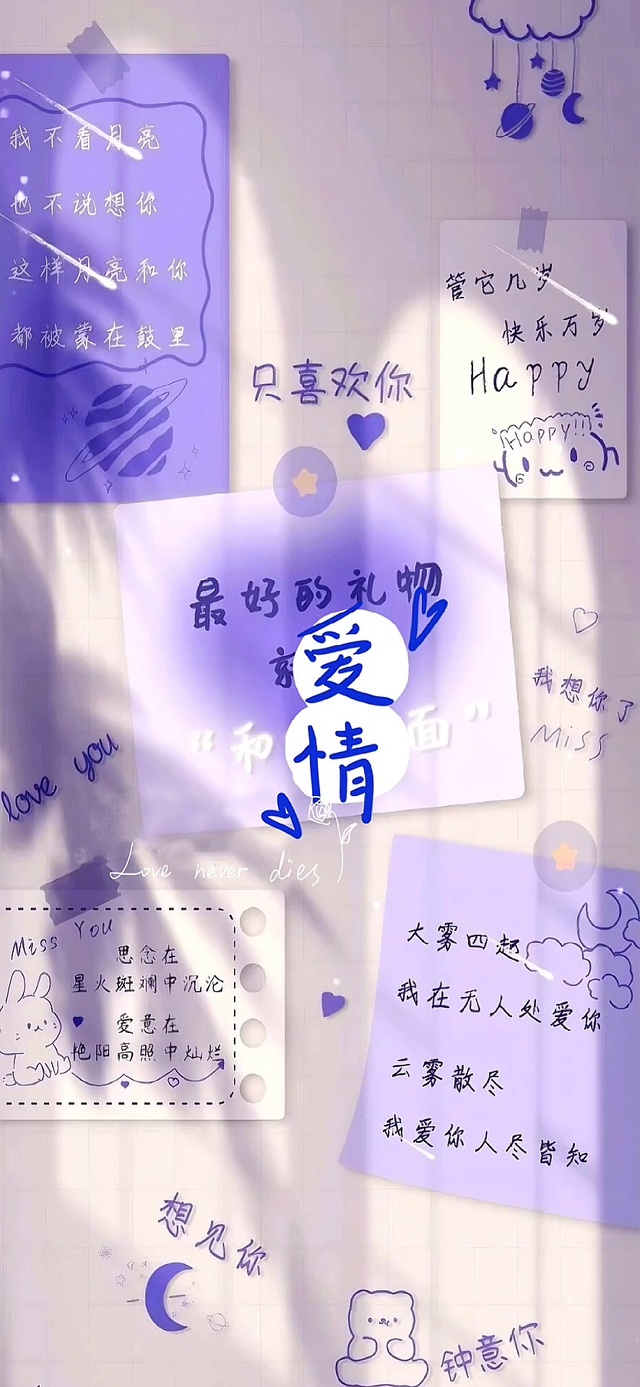 我不看月亮
也不说想你
这样月亮和你
都被蒙在鼓里
管它几岁
快乐万岁
Happy
Happy!!!
只喜欢你
最好的礼物
爱
情
“和
面”
我想你了
Miss
love you
Love never dies
Miss You
思念在
星火斑斓中沉沦
爱意在
艳阳高照中灿烂
大雾四起
我在无人处爱你
云雾散尽
我爱你人尽皆知
想见你
钟意你